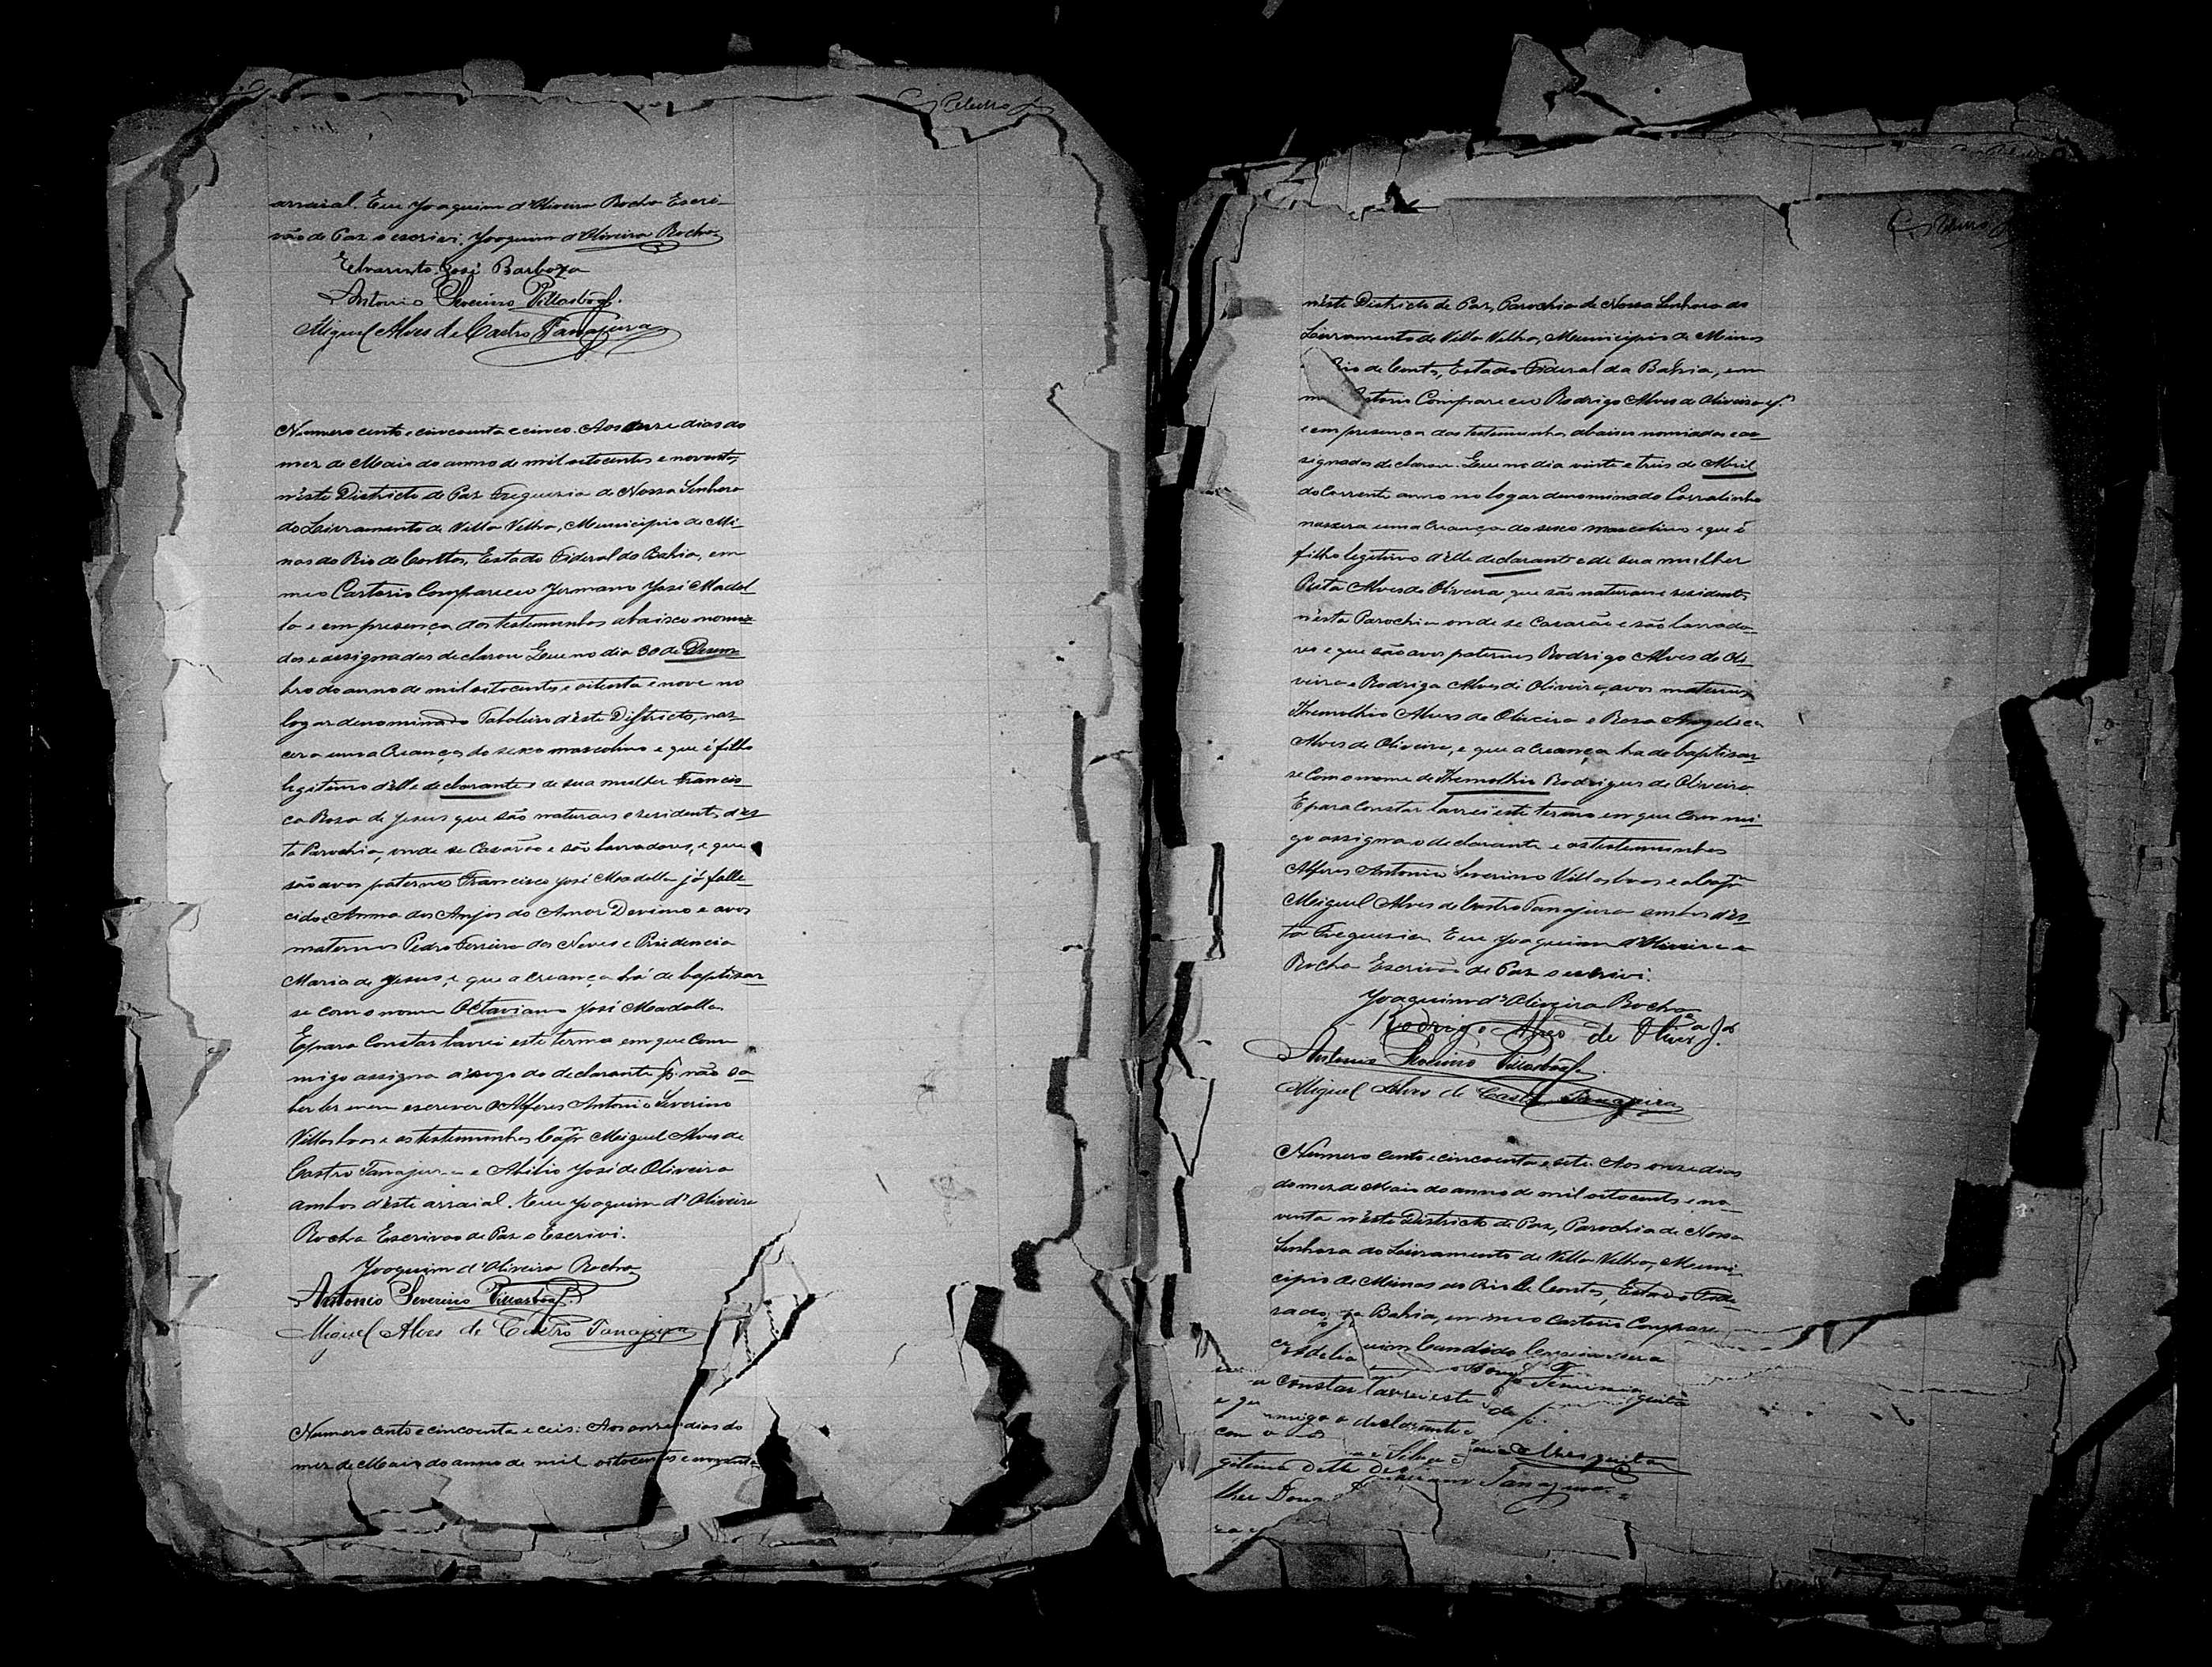 arraial. Eu Joaquim d'Oliveira Rocha Escri-
vão de Paz o escrivi. Joaquim d'Oliveira Rocha
José Barboza
Antonio Severino Villasboas.
Miguel Alves de Castro Tanajura
Numero cento e cincoenta e cinco. Aos onze dias do
mez de Maio do anno de mil oitocentos e noventa,
n'este Districto de Paz Freguezia de Nossa Senhora
do Livramento de Villa Velha, Municipio de Mi-
nas do Rio de Contas, Estado Federal da Bahia, em
meo Cartorio Compareceu Jermano José Madal-
la e em presença das testemunhas abaixo nomia-
das e assignadas declarou Que no dia 30 de Dezem-
bro do anno de mil oitocentos e oitenta e nove no
logar denominado Taboleiro d'este Districto, nas-
cera uma Creança do sexo masculino e que é filho
legitimo d'elle declarante e de sua mulher Francis-
ca Roza de Jesus que são naturaes e residentes d'es-
ta Parochia, onde se Casarão e são lavradores, e que
são avos paternos Francisco José Madalla já falle-
cido e Anna dos Anjos do Amor Devino e avos
maternos Pedro Ferreira das Neves e Prudencia
Maria de Jesus, e que a creança há de baptizar-
se com o nome Octaviano José Madalla.
E para Constar lavrei este termo em que Com-
migo assigna á rogo do declarante p. não sa-
ber ler nem escrever o Alferes Antonio Severino
Villasboas e as testemunhas Capm Miguel Alves de
Castro Tanajura e Abilio José de Oliveira
ambos d'este arraial. Eu Joaquim d'Oliveira
Rocha Escrivão de Paz o Escrivi.
Joaquim d'Oliveira Rocha
Antonio Severino Villasboas.
Miguel Alves de Castro Tanajura
Numero cento e cincoenta e ceis: Aos onze dias do
mez de Maio do anno de mil oitocentos e noventa
n'este Districto de Paz, Parochia de Nossa Senhora do
Livramento de Villa Velha, Municipio de Minas
Rio de Contas, Estado Federal da Bahia, em
Compareceu Rodrigo Alves de Oliveira Jor
e em presença das testemunhas abaixo nomiadas e as-
signadas declarou. Que no dia vinte e treis de Abril
do Corrente anno no logar denominado Corralinho
nascera uma Creança do sexo masculino e que é
filho legitimo d'elle declarante e de sua mulher
Rita Alves de Oliveira que são naturaes e residentes
n'esta Parochia onde se Casarão e são lavrado-
res e que são avos paternos Rodrigo Alves de Oli-
veira e Rodriga Alves de Oliveira, avos maternos
Themothio Alves de Oliveira e Rosa Angelica
Alves de Oliveira, e que a creança ha de baptizar-
se Com o nome de Themothio Rodrigues de Oliveira.
E para Constar lavrei este termo em que Com mi-
go assigna o declarante e as testemunhas
Alferes Antonio Severino Villasboas e o Capm
Miguel Alves de Castro Tanajura ambos d'es-
ta Freguezia. Eu Joaquim d'Oliveira
Rocha Escrivão de Paz o escrivi.
Joaquim d'Oliveira Rocha
Rodrigo Alves de Olivera Jor
Antonio Severino Villasboas.
Miguel Alves de Castro Tanajura
Numero cento e cincoenta e sete. Aos onze dias
do mez de Maio do anno de mil oitocentos e no-
venta n'este Districto de Paz, Parochia de Nossa
Senhora do Livramento de Villa Velha, Muni-
cipio de Minas do Rio de Contas, Estado Fede-
Bahia, em meo Cartorio Compare-
Candido
Constar lavrei este
migo o declarante
Silva Mesquita
Tanajura